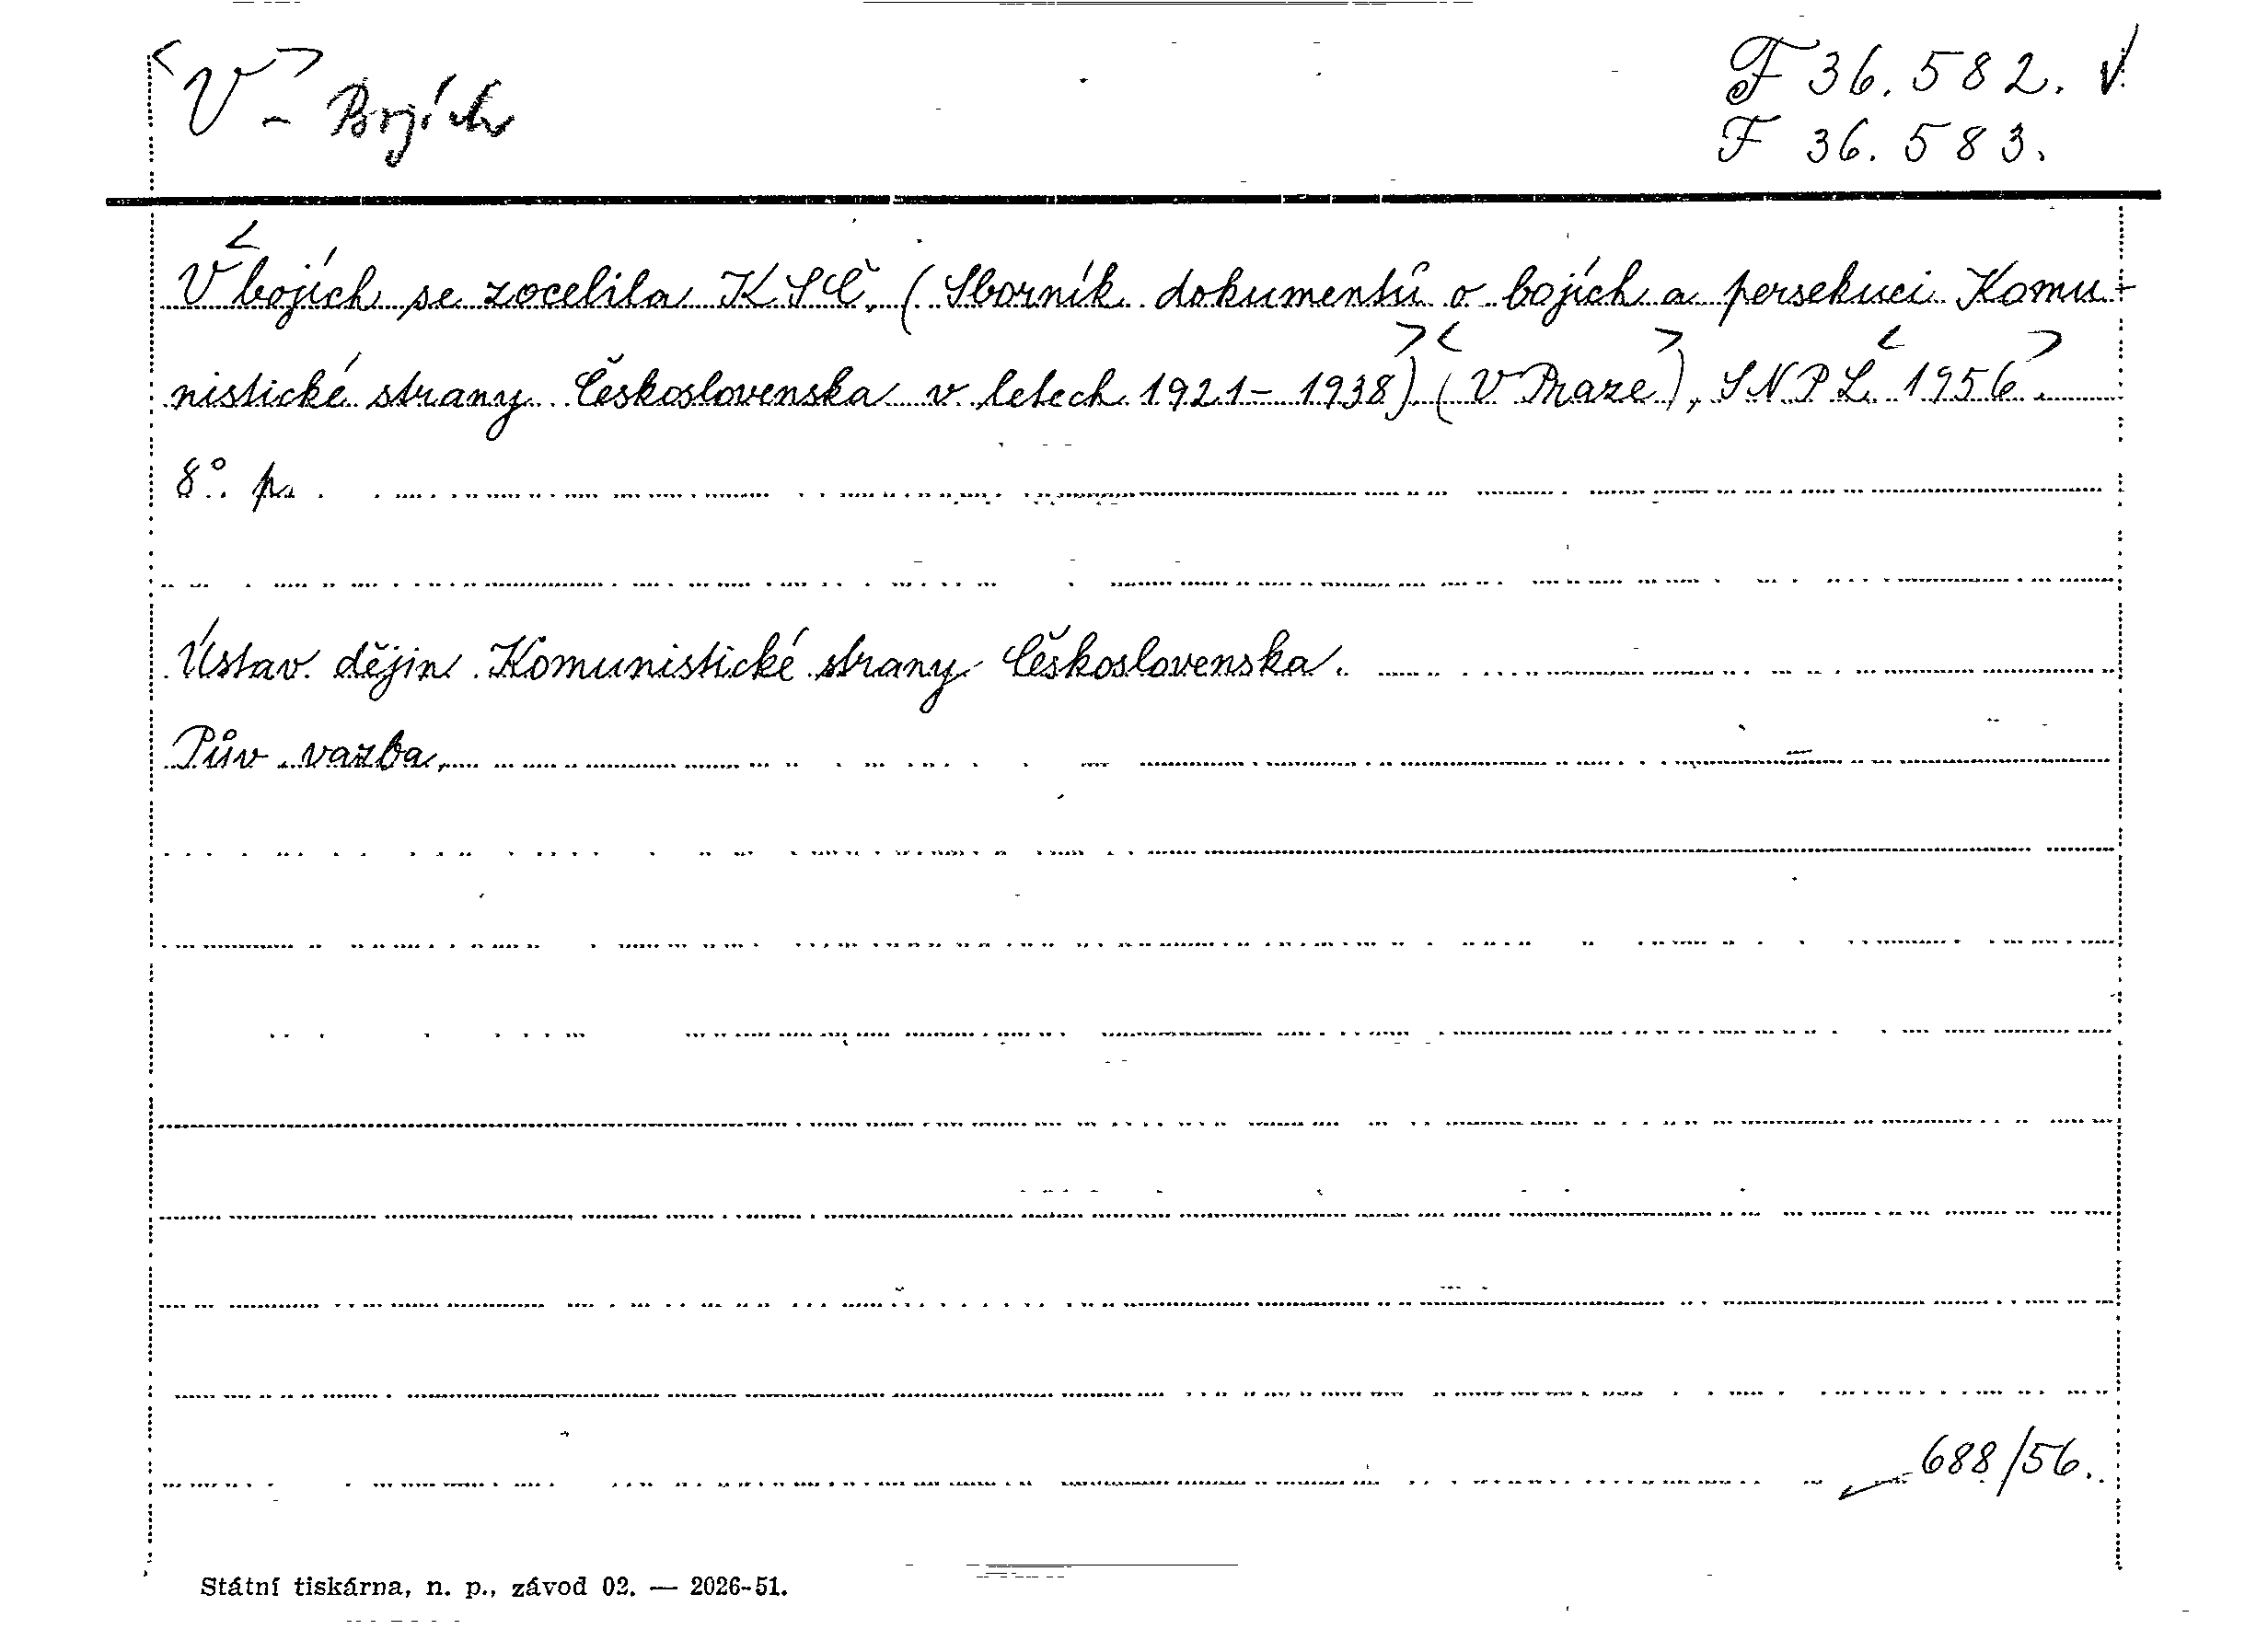 <V> - Bojích
F 36.582. √
F 36.583.
V <bojích se zocelila KSČ. (Sborník dokumentů o bojích a persekuci Komu-
nistické strany Československa v letech 1921-1938>) (<V Praze>), SNPL <1956>.
8°. p.
Ústav dějin Komunistické strany Československa.
Pův. vazba.
688/56.
Státní tiskárna, n. p., závod 02. — 2026-51.